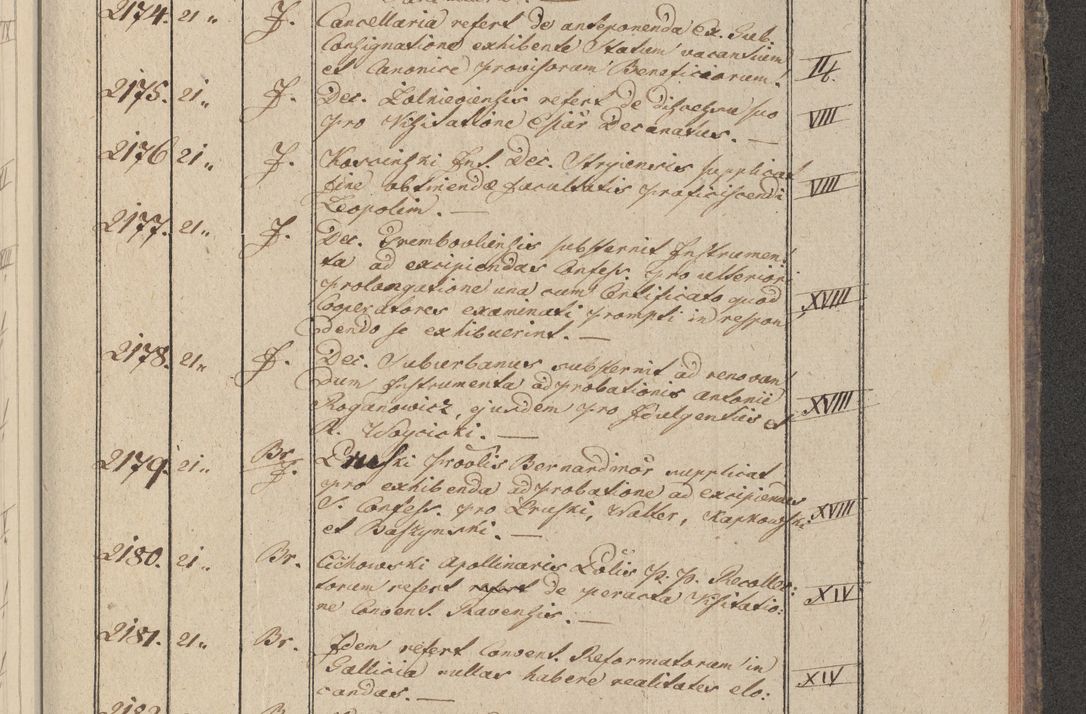 2174. 21„ J. Cancellaria refert de anteponenda Ex. Gub.
Consignatione exhibente Statum vacantium
et Canonice provisorum Beneficiorum. II
2175. 21„ J. Dec. refert de discessu suo
pro Visitatione Decanatus. — VIII
2176 21„ J. Inst. Dec. Stryiensis supplicat
fine obtinendae facultatis proficiscendi VIII
Leopolim. —
2177. 21„ J. Dec. Trembovliensis substernit Instrumen:
ta ad excipiendas Confess. pro ulteriori
prolongatione una cum Certificato quod
Cooperatores examinati prompti in respon XVIII
dendo se exhibuerint. —
2178. 21„ J. Dec. Suburbanus substernit ad renovan
dum Instrumenta adprobationis antonii
Roganowicz, ejusdem pro et XVIII
R. Woycicki. —
2179. 21„ Br. J. Pruski Provlis Bernardinor supplicat
pro exhibenda adprobatione ad excipiendas
S. Confess. pro Pruski, Walter, Karkowski XVIII
et Baszynski. —
2180. 21„ Br. Cichowski Apollinaris P. P. Recollec:
torum refert de peracta Visitatio:
ne Convent. Ravensis. — XIV
2181. 21„ Br. Idem refert Convent. Reformatorum in
Gallicia nullas habere realitates elo:
candas. — XIV